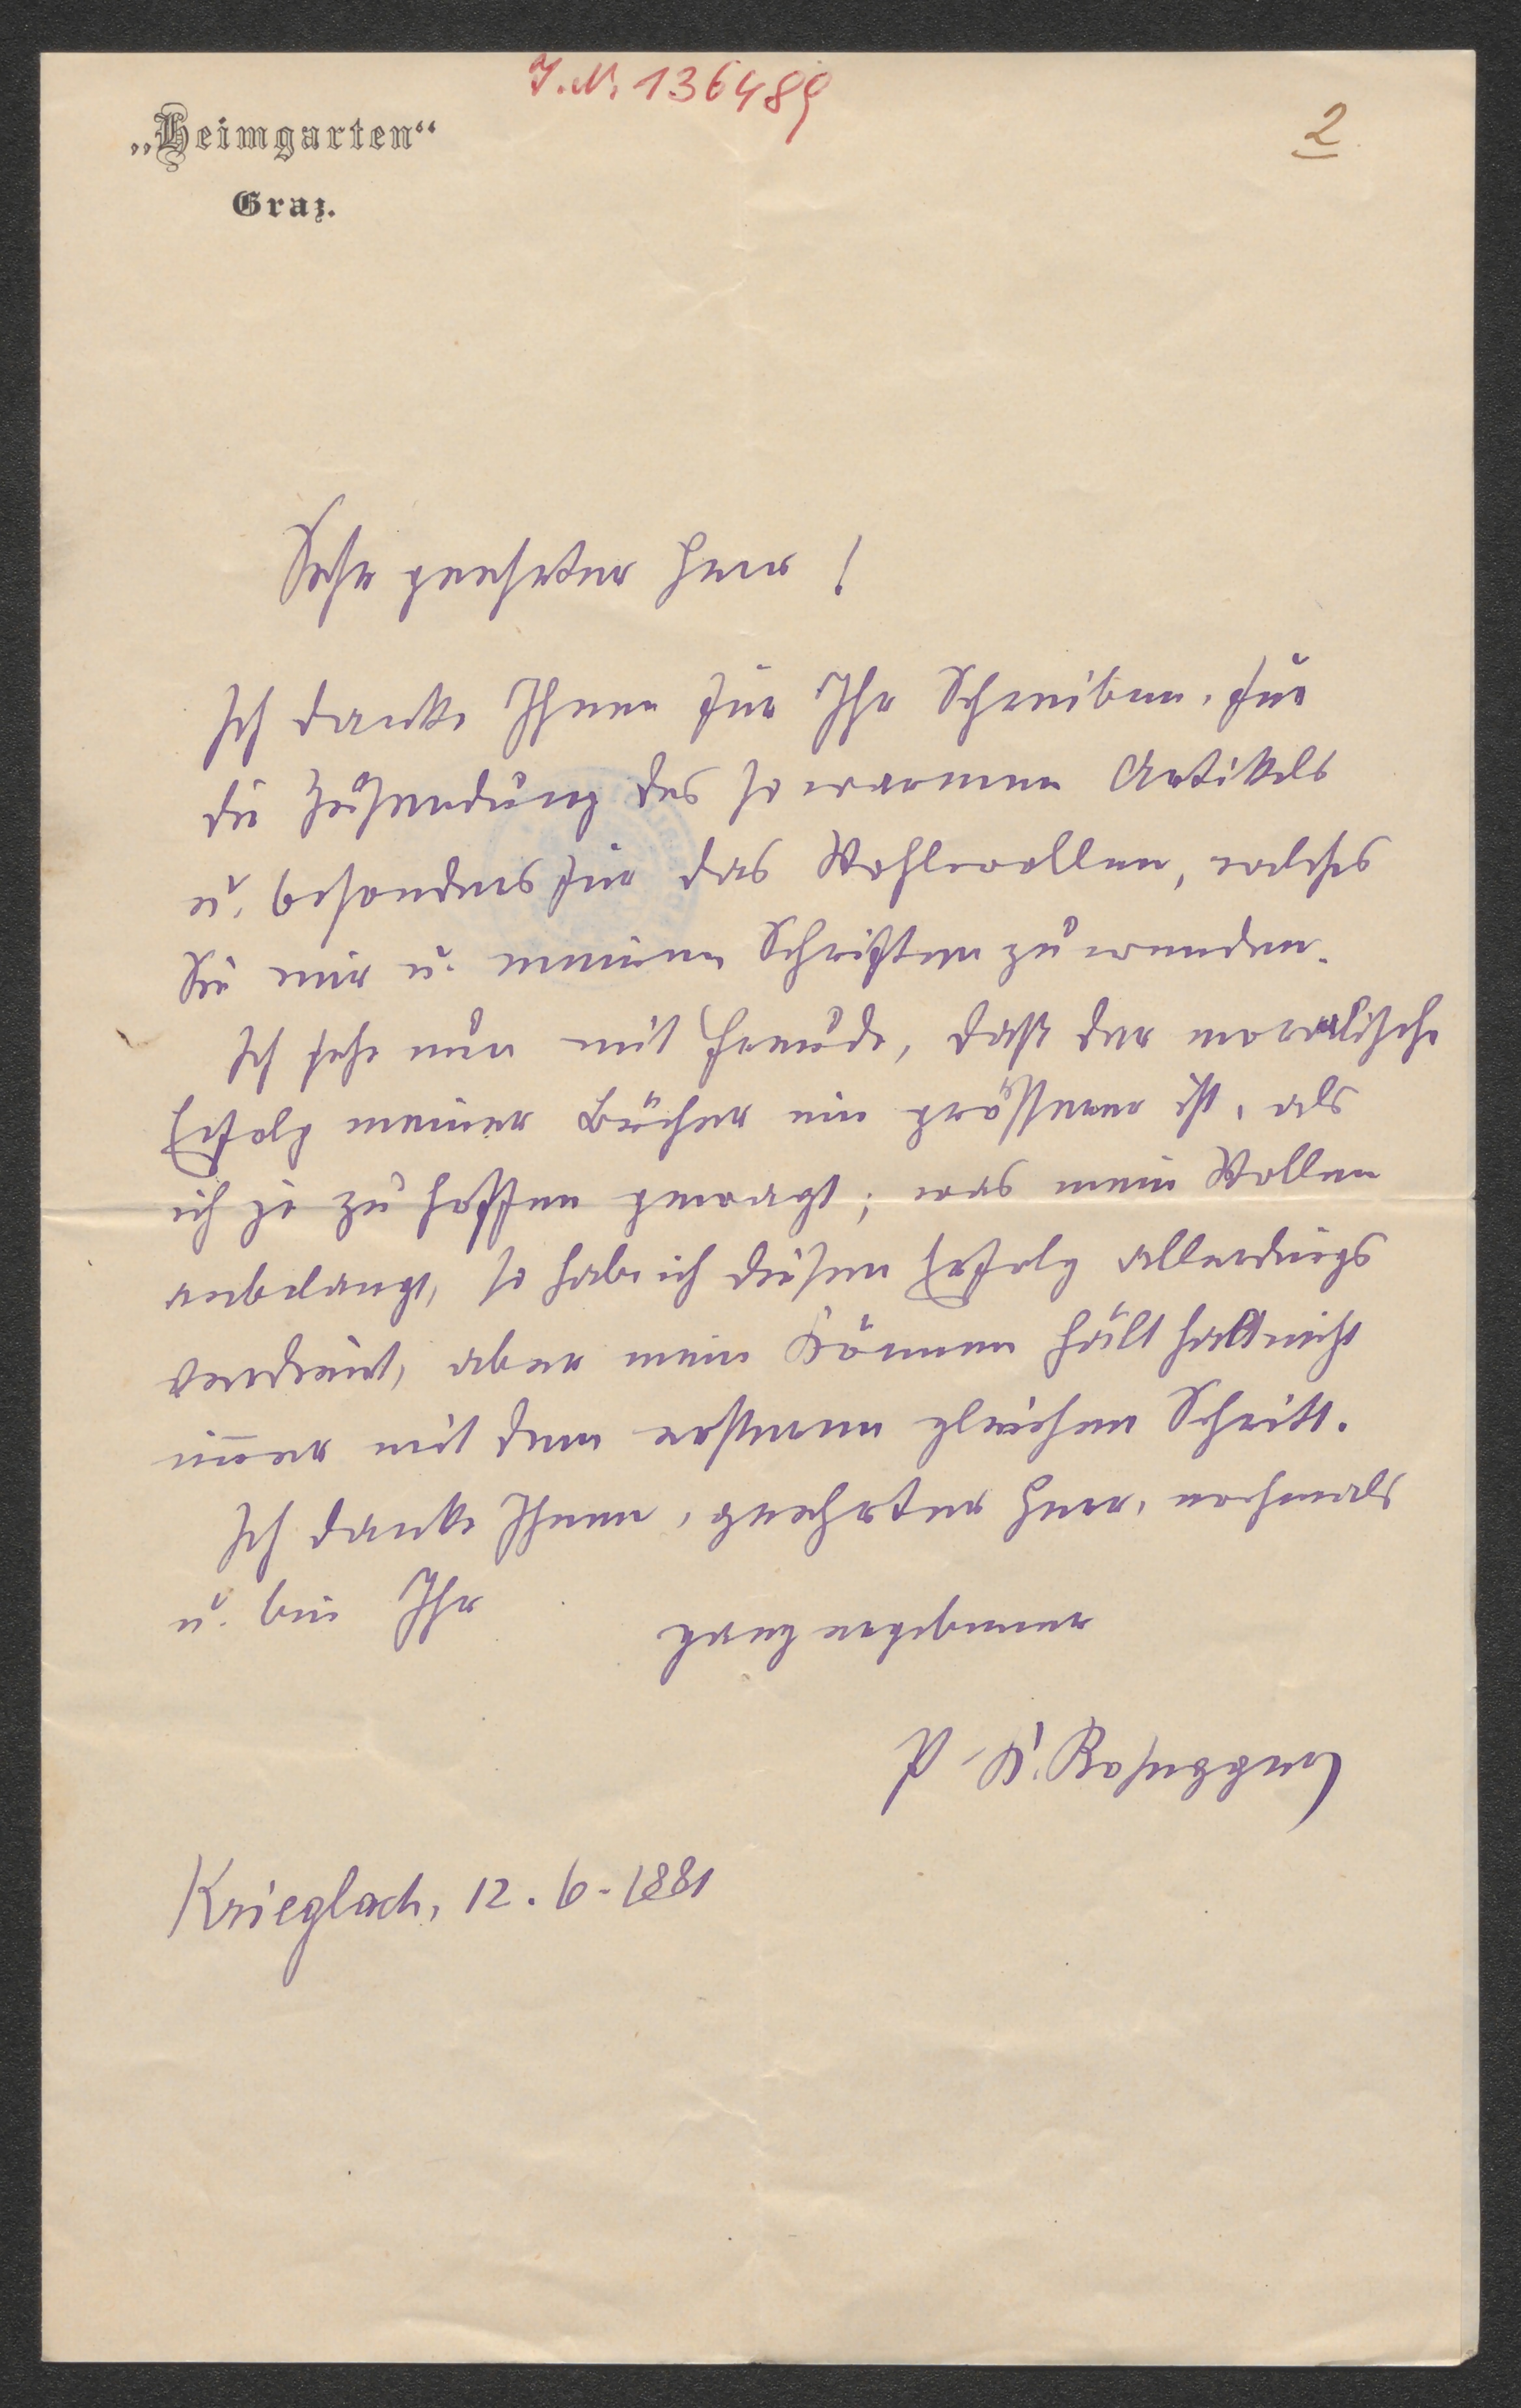 J.N. 136489
2
„Heimgarten“
Graz.
Sehr geehrter Herr!
Ich danke Ihnen für Ihr Schreiben, für
die Zusendung des so warmen Artikels
u. besonders für das Wohlwollen, welches
Sie mir u. meinen Schriften zuwenden.
Ich sehe nun mit Freude, daß der moralische
Erfolg meiner Bücher ein grösserer ist, als
ich je zu hoffen gewagt; was mein Wollen
anbelangt, so habe ich diesen Erfolg allerdings
verdient, aber mein Können hält halt nicht
im̅er mit dem ersteren gleichen Schritt.
Ich danke Ihnen, geehrter Herr, nochmals
u. bin Ihr
ganz ergebener
P. K. Rosegger
Krieglach, 12. 6. 1881